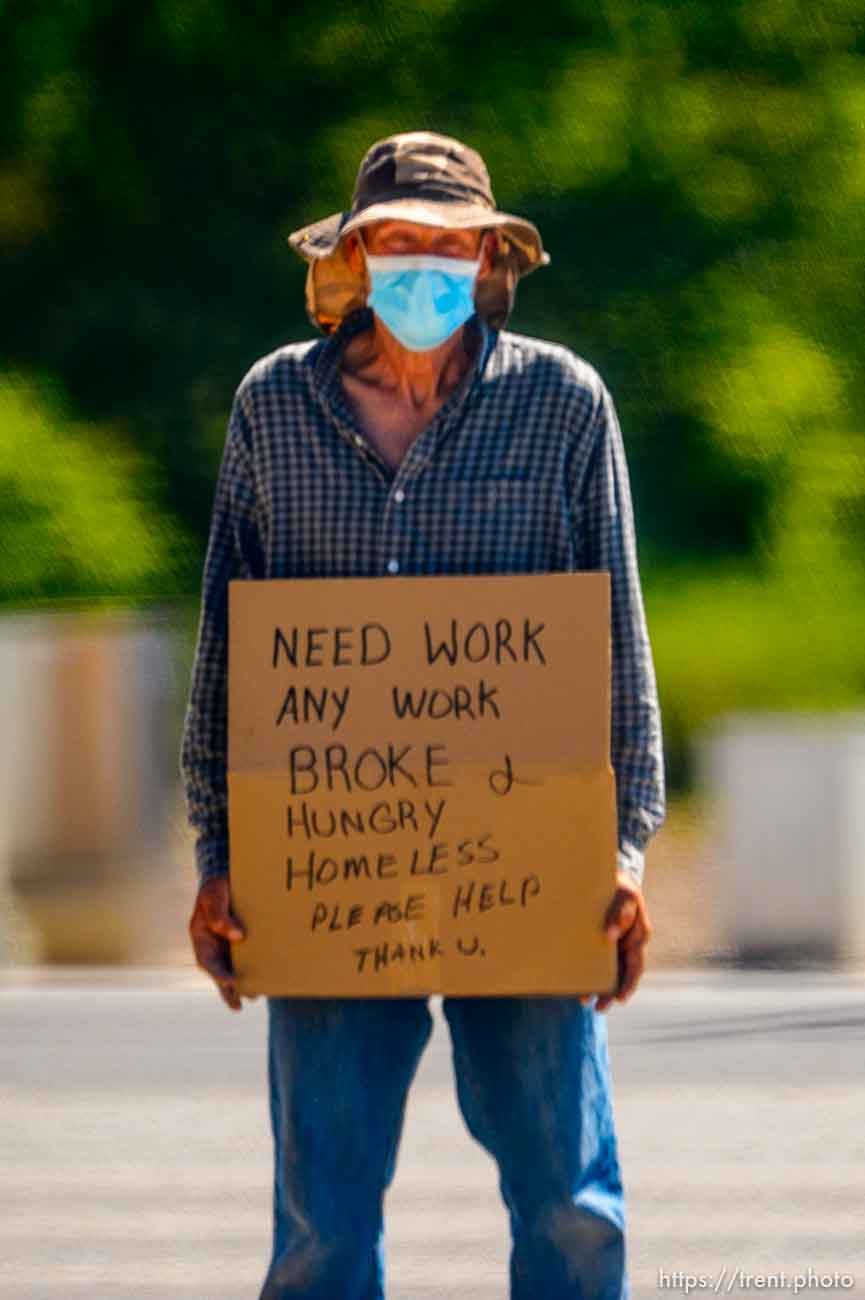 NEED WORK
ANY WORK
BROKE &
HUNGRY
HOMELESS
PLEASE HELP
THANK U.
https://trent.photo